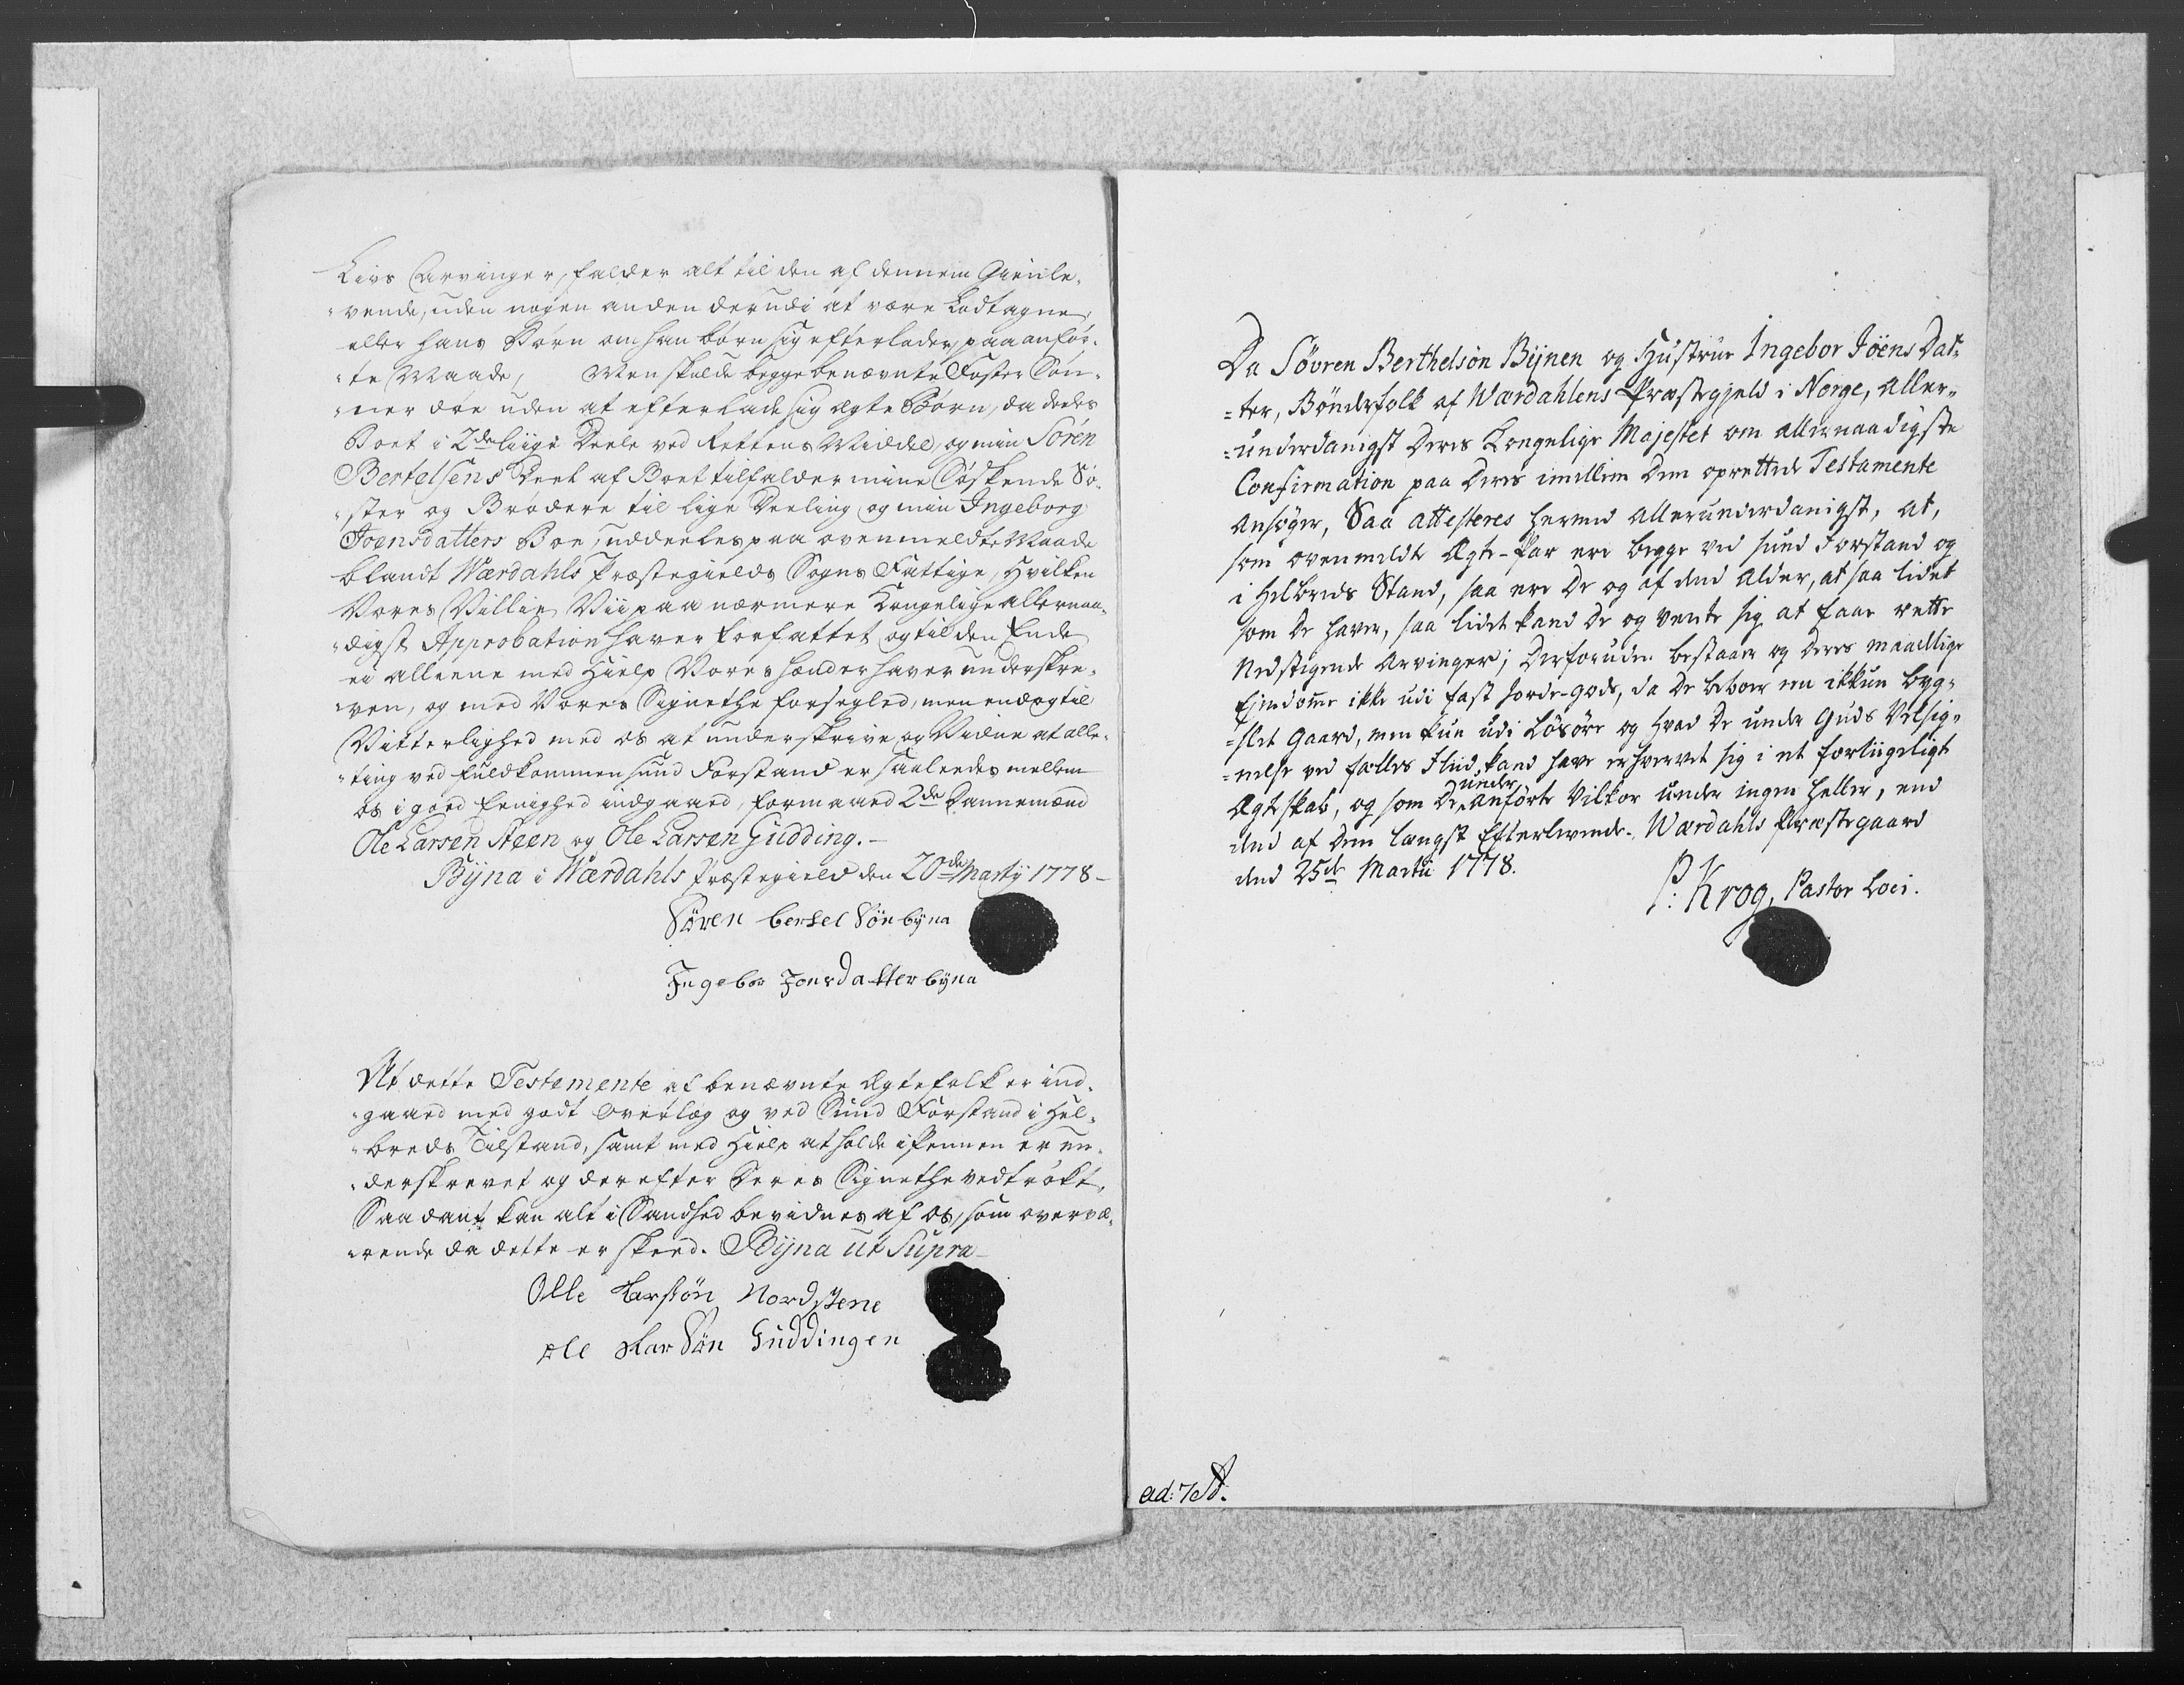 Livs Arvinger, falder alt til den af dennem Gienle-
vende, uden nogen anden derudi at være Lodtagne,
eller hans Børn om han børn sig efterlader, paa anfør-
te Maade, Men skulde begge benævnte Foster Søn-
ner døe uden at efterlade sig ægte Børn, da deeles
Boet i 2de liige Deele ved Rettens Middel, og min Søren
Bertelsens Deel af Boet tilfalder mine Sødskende Sø-
ster og Brødere til lige Deeling og min Ingeborg
Joensdatters Boe, uddeeles paa ovenmeldte Maade
blandt Wærdahls Præstegields Sogns Fattige, Hvilken
Vores Villie Vii paa nærmere Kongelige allernaa-
digst Approbation haver forfattet og til den Ende
ei alleene med Hielp Vores hænder haver underskre-
ven, og med Vores Signethe forsegled, men endog til
Vitterlighed med os at underskrive og Vidne at alle-
ting ved fuldkommen sund Forstand er saaleedes mellem
os i goed Eenighed indgaaed, formaaed 2de Dannemænd
Ole Larsen Steen og Ole Larsen Gudding.-
Byna i Wærdahls Præstegield den 20de Marty 1778-
Søren bertel Søn byna
Ingebor Jonsdatter byna
At dette Testemente af benævnte Ægtefolk er ind-
gaaed med godt Overlæg og ved Sund Forstand i Hel-
breds Tilstand, samt med Hielp at holde i Pennen er un-
derskrevet og derefter Deres Signethe vedtrøkt,
Saadant kan alt i Sandhed bevidnes af os, som overvæ-
rende da dette er skeed. Byna ut Supra-
Olle Larssøn Nordstene
ole Lar Søn Guddingen
Da Søvren Berthelsøn Bynen og Hustrue Ingebor Jöens Dat-
=ter, Bönderfolk af Wærdahlens Præstegjeld i Norge, aller-
=underdanigst Deres Kongelige Majestet om allernaadigste
Confirmation paa Deres imellem Dem oprettede Testamente
Ansöger, Saa attesteres herved allerunderdanigst, at,
som ovenmeldte Ægte-Par ere begge ved sund Forstand og
i Helbreds Stand, saa ere De og af dend Alder, at saa lidet
som De haver, saa lidet kand De og vente sig at faae rette
Nedstigende Arvinger; Desforuden bestaaer og Deres maadelige
Ejendomme ikke udi fast Jorde-gods, da De beboer een ikkun byg-
=slet Gaard, men kun udi Lösöre og Hvad De under Guds Velsig-
=nelse ved fælles Fliid kand have erhvervet sig i et forliigeligt
under
Ægteskab, og som De anförte Vilkor under ingen heller, end
dend af Dem længst Efterlevende. Wærdahls Præstegaard
dend 25de Martii 1778.
P: Krog, Pastor Loci.
ad: 7 A.